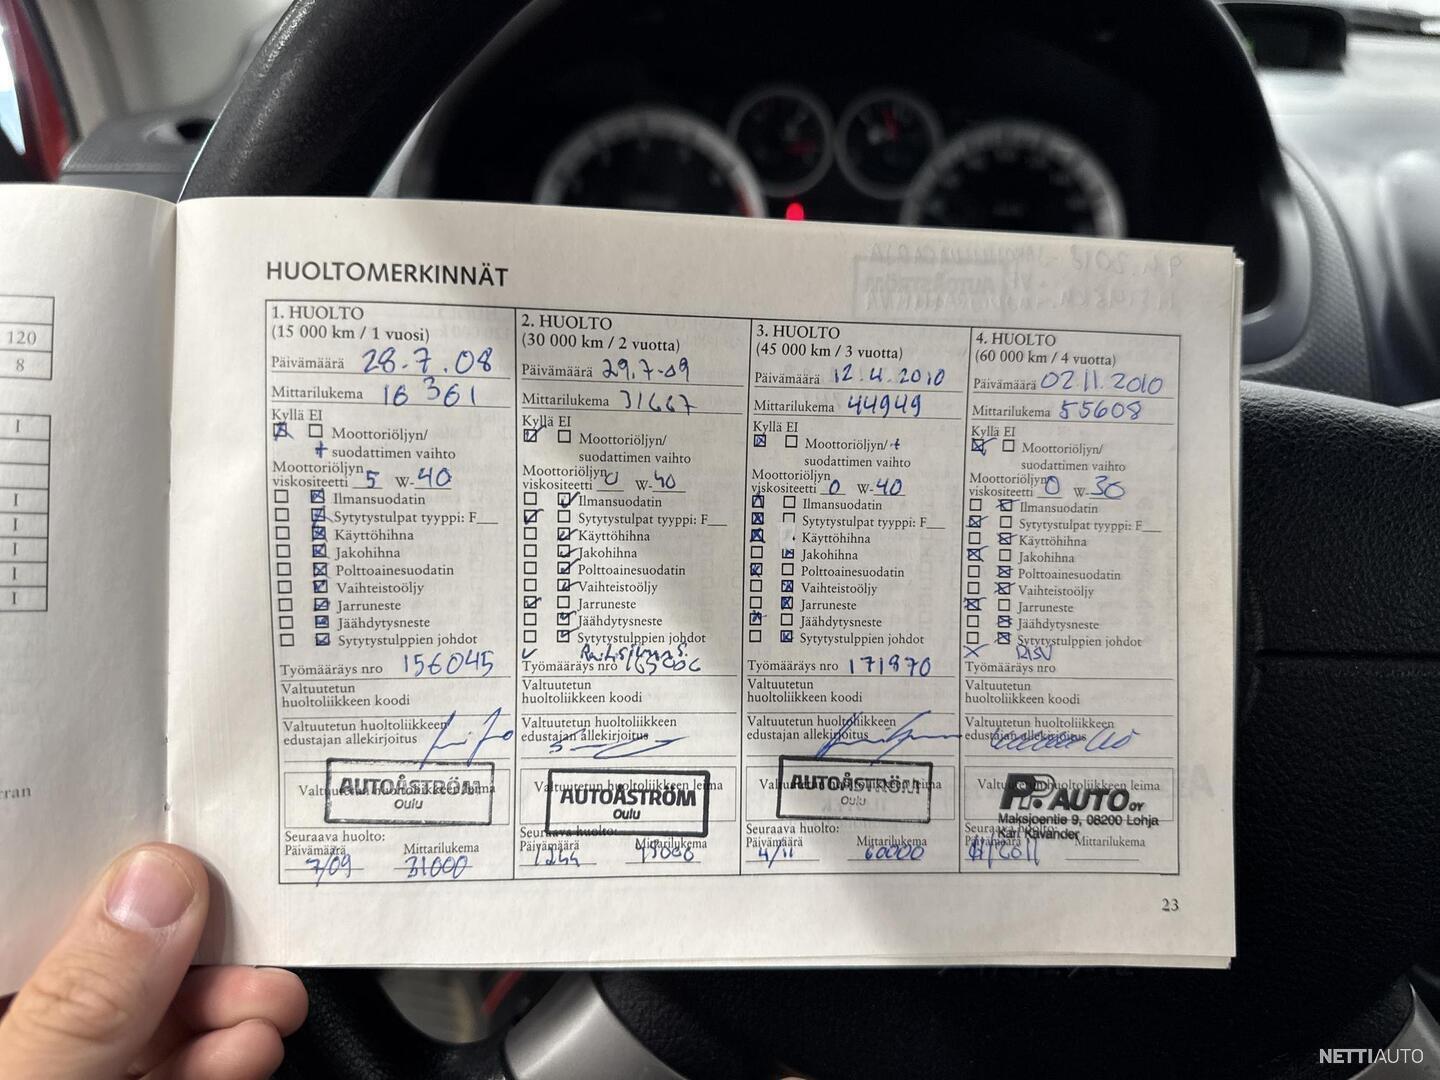 120
8
I
I
I
I
I
I
HUOLTOMERKINNÄT
1. HUOLTO
(15 000 km / 1 vuosi)
Päivämäärä 28.7.08
Mittarilukema 16 361
Kyllä EI
Moottoriöljyn/
+ suodattimen vaihto
Moottoriöljyn
viskositeetti 5 W-40
Ilmansuodatin
Sytytystulpat tyyppi: F___
Käyttöhihna
Jakohihna
Polttoainesuodatin
Vaihteistoöljy
Jarruneste
Jäähdytysneste
Sytytystulppien johdot
Työmääräys nro 156045
Valtuutetun
huoltoliikkeen koodi
Valtuutetun huoltoliikkeen
edustajan allekirjoitus
Valtuutetun huoltoliikkeen leima
AUTOÅSTRÖM
Oulu
Seuraava huolto:
Päivämäärä Mittarilukema
7/09 31000
2. HUOLTO
(30 000 km / 2 vuotta)
Päivämäärä 29.7-09
Mittarilukema 31667
Kyllä EI
Moottoriöljyn/
suodattimen vaihto
Moottoriöljyn
viskositeetti 0 W-40
Ilmansuodatin
Sytytystulpat tyyppi: F___
Käyttöhihna
Jakohihna
Polttoainesuodatin
Vaihteistoöljy
Jarruneste
Jäähdytysneste
Sytytystulppien johdot
Työmääräys nro
Valtuutetun
huoltoliikkeen koodi
Valtuutetun huoltoliikkeen
edustajan allekirjoitus
Valtuutetun huoltoliikkeen leima
AUTOÅSTRÖM
Oulu
Seuraava huolto:
Päivämäärä Mittarilukema
3. HUOLTO
(45 000 km / 3 vuotta)
Päivämäärä 12.4.2010
Mittarilukema 44949
Kyllä EI
Moottoriöljyn/+
suodattimen vaihto
Moottoriöljyn
viskositeetti 0 W-40
Ilmansuodatin
Sytytystulpat tyyppi: F___
Käyttöhihna
Jakohihna
Polttoainesuodatin
Vaihteistoöljy
Jarruneste
Jäähdytysneste
Sytytystulppien johdot
Työmääräys nro 171870
Valtuutetun
huoltoliikkeen koodi
Valtuutetun huoltoliikkeen
edustajan allekirjoitus
Valtuutetun huoltoliikkeen leima
AUTOÅSTRÖM
Oulu
Seuraava huolto:
Päivämäärä Mittarilukema
4/11 60000
4. HUOLTO
(60 000 km / 4 vuotta)
Päivämäärä 02.11.2010
Mittarilukema 55608
Kyllä EI
Moottoriöljyn/
suodattimen vaihto
Moottoriöljyn
viskositeetti 0 W-30
Ilmansuodatin
Sytytystulpat tyyppi: F___
Käyttöhihna
Jakohihna
Polttoainesuodatin
Vaihteistoöljy
Jarruneste
Jäähdytysneste
Sytytystulppien johdot
Työmääräys nro
Valtuutetun
huoltoliikkeen koodi
Valtuutetun huoltoliikkeen
edustajan allekirjoitus
Valtuutetun huoltoliikkeen leima
AUTO OY
Maksjoentie 9, 08200 Lohja
Kari Kavander
Seuraava huolto:
Päivämäärä Mittarilukema
23
NETTIAUTO